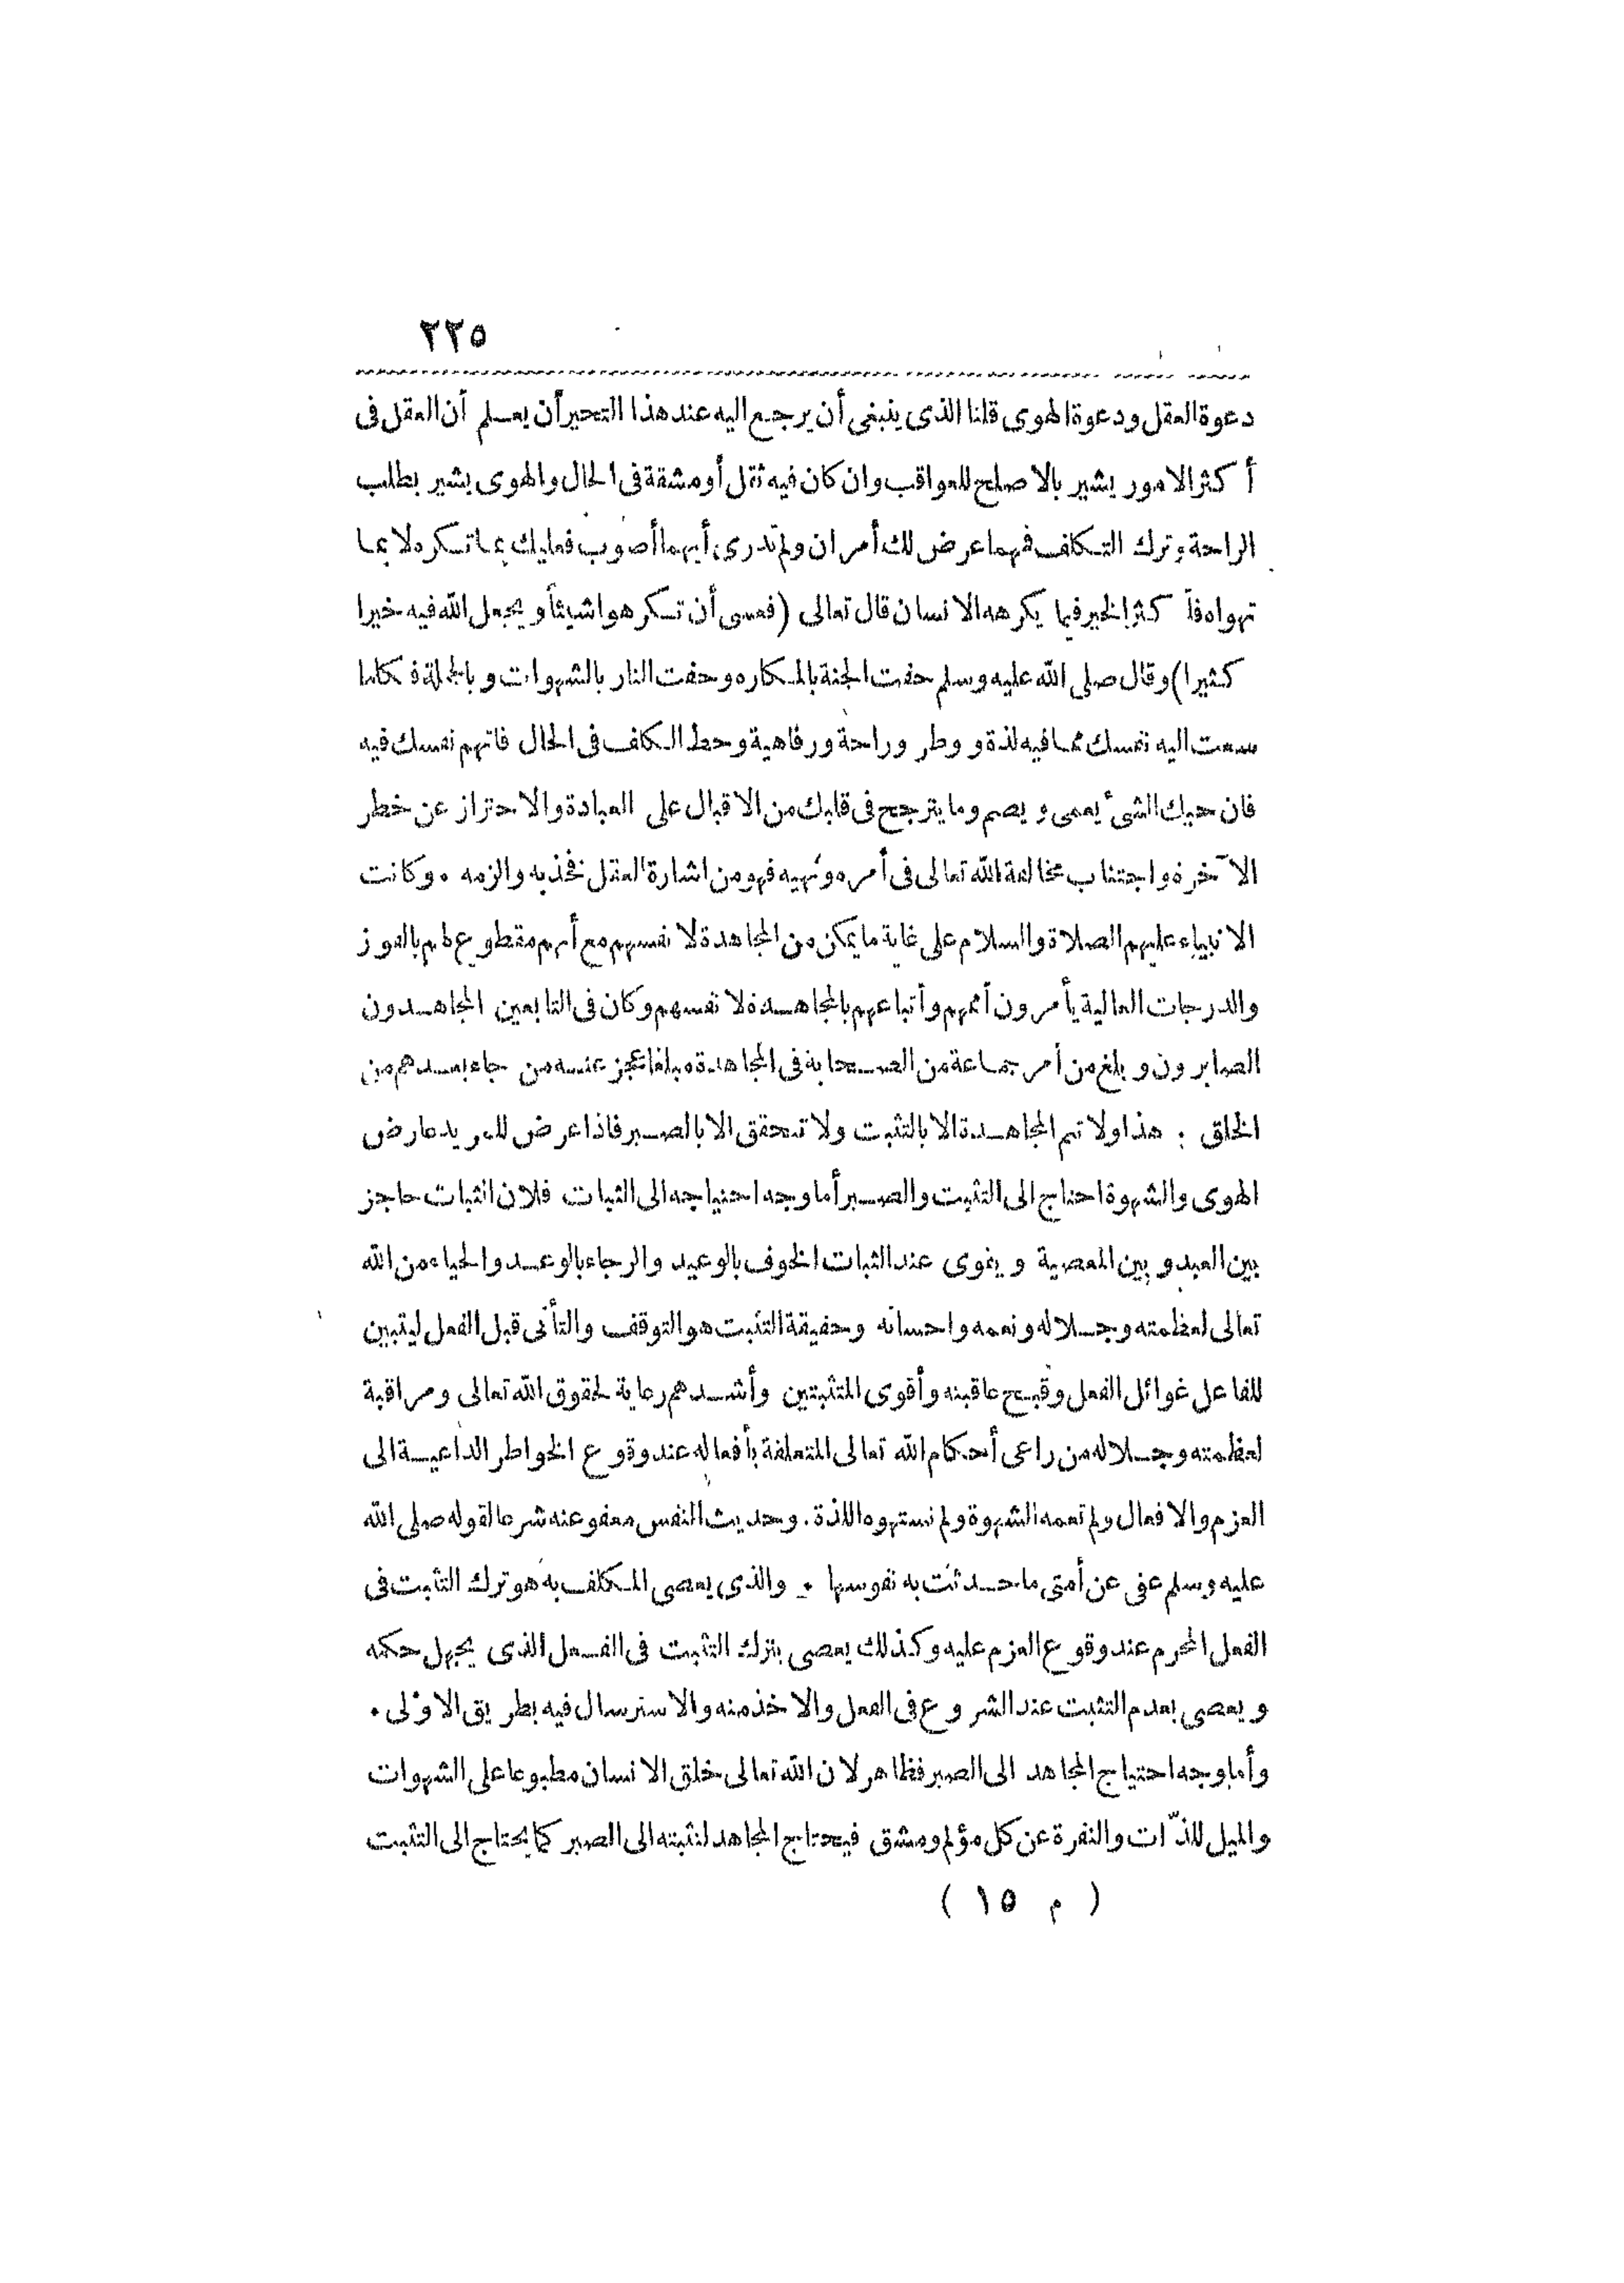 ٢٢٥
دعوة العقل ودعوة الهوى قلنا الذى ينبغى أن يرجع اليه عند هذا التحير أن يعلم أن العقل فى
أكثر الامور يشير بالاصلح للعواقب وان كان فيه ثقل أو مشقة فى الحال والهوى يشير بطلب
الراحة وترك التكلف فهما عرض لك أمران ولم تدر أيهما أصوب فعليك بما تكره لا بما
تهواه فأكثر الخير فيما يكرهه الانسان قال تعالى (فعسى أن تكرهوا شيئا ويجعل الله فيه خيرا
كثيرا) وقال صلى الله عليه وسلم حفت الجنة بالمكاره وحفت النار بالشهوات وبالجملة فكلما
سمت اليه نفسك مما فيه لذة ووطر وراحة ورفاهية وحط الكلف فى الحال فاتهم نفسك فيه
فان حبك الشئ يعمى ويصم وما يترجح فى قلبك من الاقبال على العبادة والاحتراز عن خطر
الآخرة واجتناب مخالفة الله تعالى فى أمره ونهيه فهو من اشارة العقل فخذ به والزمه . وكانت
الانبياء عليهم الصلاة والسلام على غاية ما يمكن من المجاهدة لانفسهم مع أنهم مقطوع لهم بالفوز
والدرجات العالية يأمرون أممهم وأتباعهم بالمجاهدة لانفسهم وكان فى التابعين المجاهدون
الصابرون وبلغ من أمر جماعة من الصحابة فى المجاهدة مبلغا عجز عنه من جاء بعدهم من
الخلق : هذا ولا تتم المجاهدة الا بالتثبت ولا تتحقق الا بالصبر فاذا عرض للمريد عارض
الهوى والشهوة احتاج الى التثبت والصبر أما وجه احتياجه الى الثبات فلان الثبات حاجز
بين العبد وبين المعصية ويقوى عند الثبات الخوف بالوعيد والرجاء بالوعد والحياء من الله
تعالى لعظمته وجلاله ونعمه واحسانه وحقيقة التثبت هو التوقف والتأنى قبل الفعل ليتبين
للفاعل غوائل الفعل وقبح عاقبته وأقوى المتثبتين وأشدهم رعاية لحقوق الله تعالى ومراقبة
لعظمته وجلاله من راعى أحكام الله تعالى المتعلقة بأفعاله عند وقوع الخواطر الداعية الى
العزم والافعال ولم تعمه الشهوة ولم تستهوه اللذة . وحديث النفس معفو عنه شرعا لقوله صلى الله
عليه وسلم عفى عن أمتى ما حدثت به نفوسها . والذى يعصى المكلف به هو ترك التثبت فى
الفعل المحرم عند وقوع العزم عليه وكذلك يعصى بترك التثبت فى الفعل الذى يجهل حكمه
ويعصى بعدم التثبت عند الشروع فى الفعل والاخذ منه والاسترسال فيه بطريق الاولى .
وأما وجه احتياج المجاهد الى الصبر فظاهر لان الله تعالى خلق الانسان مطبوعا على الشهوات
والميل للذّات والنفرة عن كل مؤلم ومشق فيحتاج المجاهد لتثبته الى الصبر كما يحتاج الى التثبت
( م ١٥ )